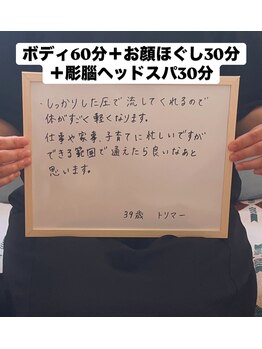 ボディ60分＋お顔ほぐし30分
＋彫脳ヘッドスパ30分
・しっかりした圧で流してくれるので
体がすごく軽くなります。
仕事や家事、子育てに忙しいですが
できる範囲で通えたら良いなぁと
思います。
39歳 トリマー